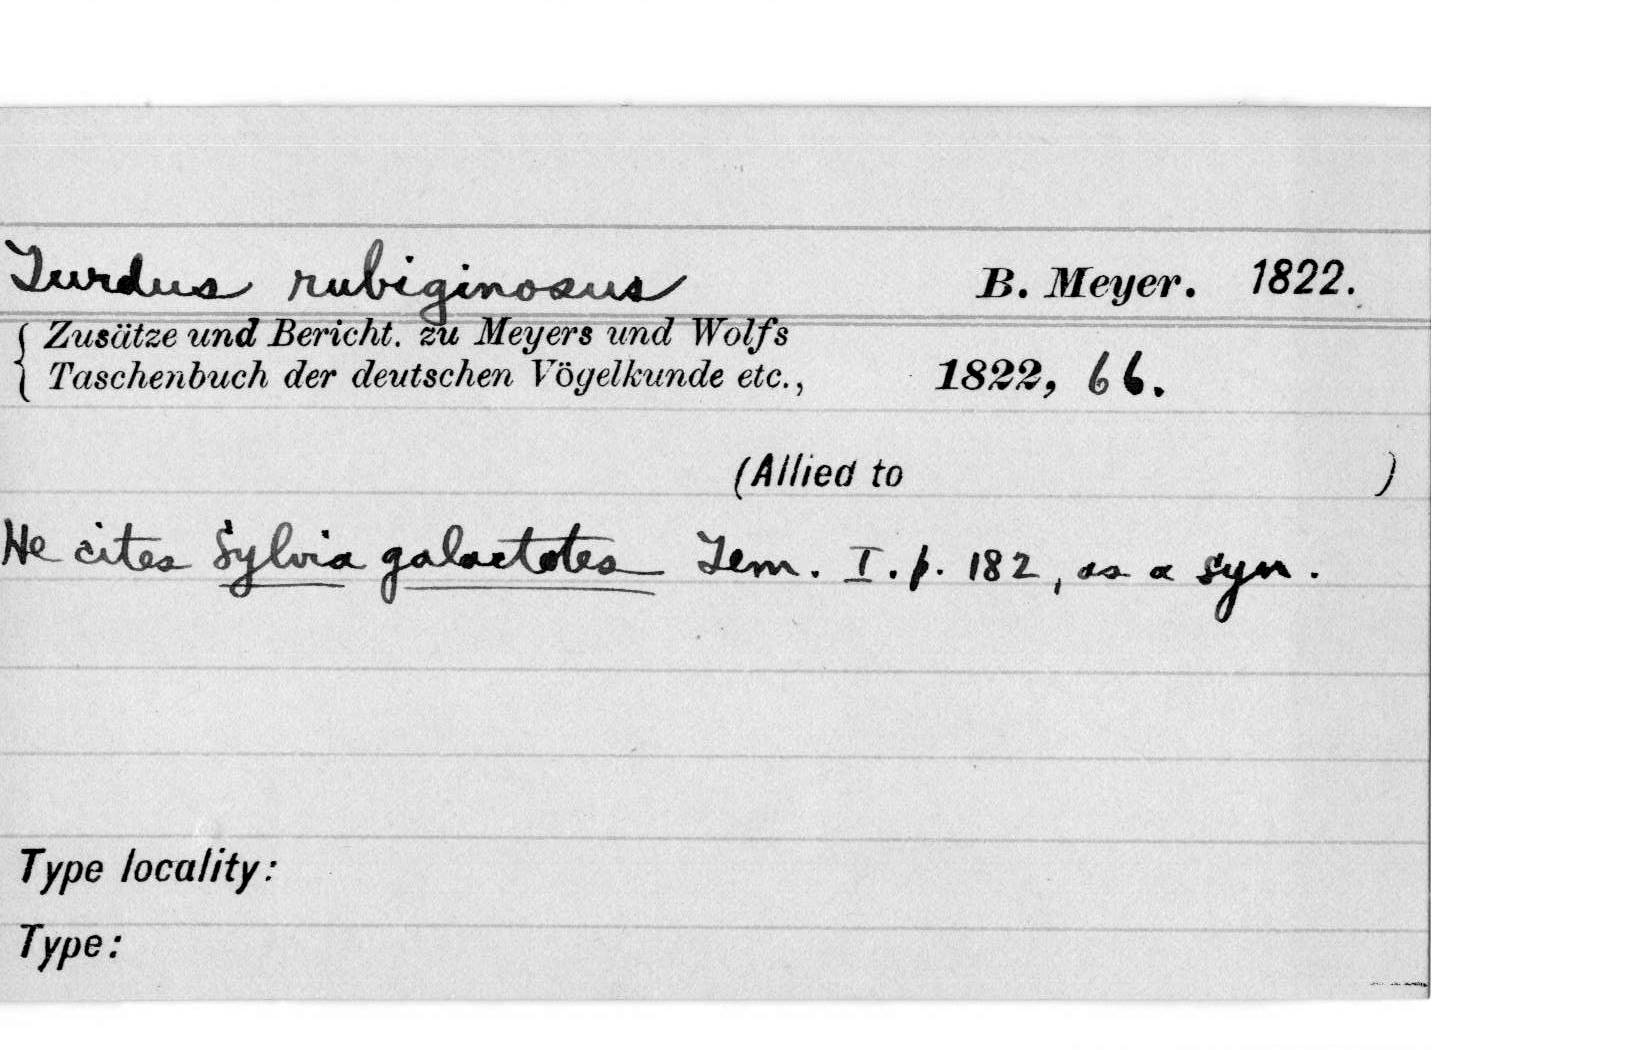 Turdus rubiginosus B. Meyer. 1822.
{ Zusätze und Bericht. zu Meyers und Wolfs
Taschenbuch der deutschen Vögelkunde etc., 1822, 66.
(Allied to )
He cites Sylvia galactotes Tem. I. p. 182, as a syn.
Type locality:
Type: